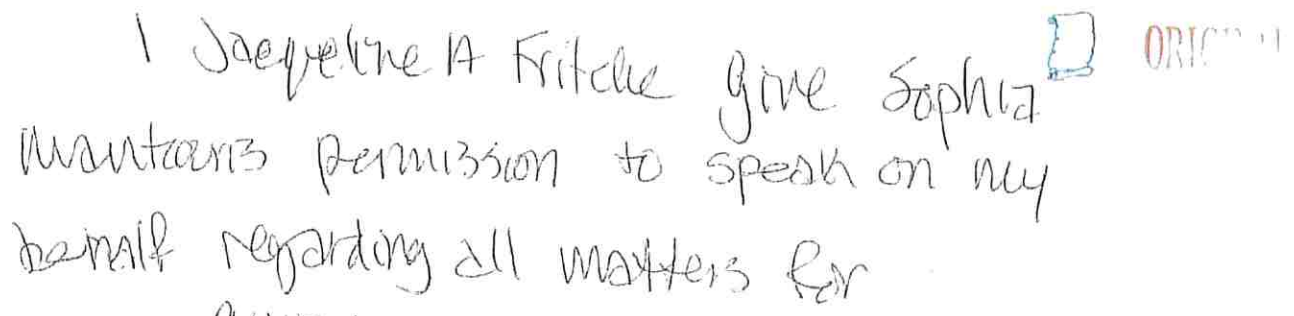 I Jacqueline A Fritche give Sophia
Mantouris permission to speak on my
behalf regarding all matters for